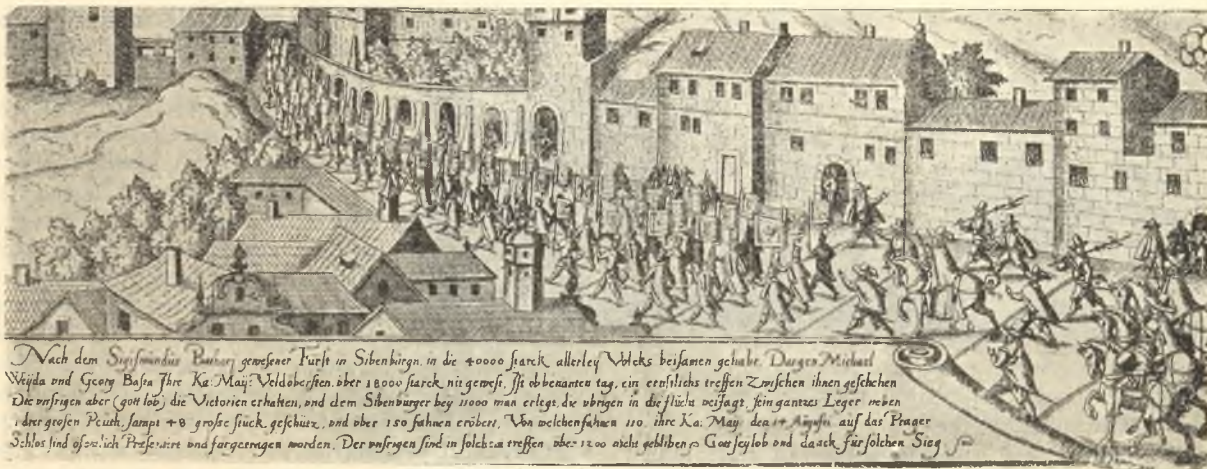 Nach dem Sigismundus gewesener Furst in Sibenbirgn, in die 40000 starck allerley Volcks beisamen gehabt. Dargen Michael
Weyda vnd Georg Basta Ihre Ka: May: Veldobersten, vber 18000 starck nit gewest, Ist obbenanten tag, ein ernstlichs treffen Zwischen ihnen geschehen
Die vnsrigen aber (gott lob) die Victorien erhalten, vnd dem Sibenburger bey 11000 man erlegt, die vbrigen in die flucht veriagt, sein gantzes Leger neben
der grosen Peuth, sampt 48 grose stuck, geschutz, vnd vber 150 fahnen eröbert, Von welchen fahnen 110, ihre Ka: May: den 14 Augusti auf das Prager
Schlos sind Presentirt vnd furgetragen worden. Der vnsrigen sind in solchem treffen vber 1200 nicht gebliben Gott sey lob vnd danck für solchen Sieg